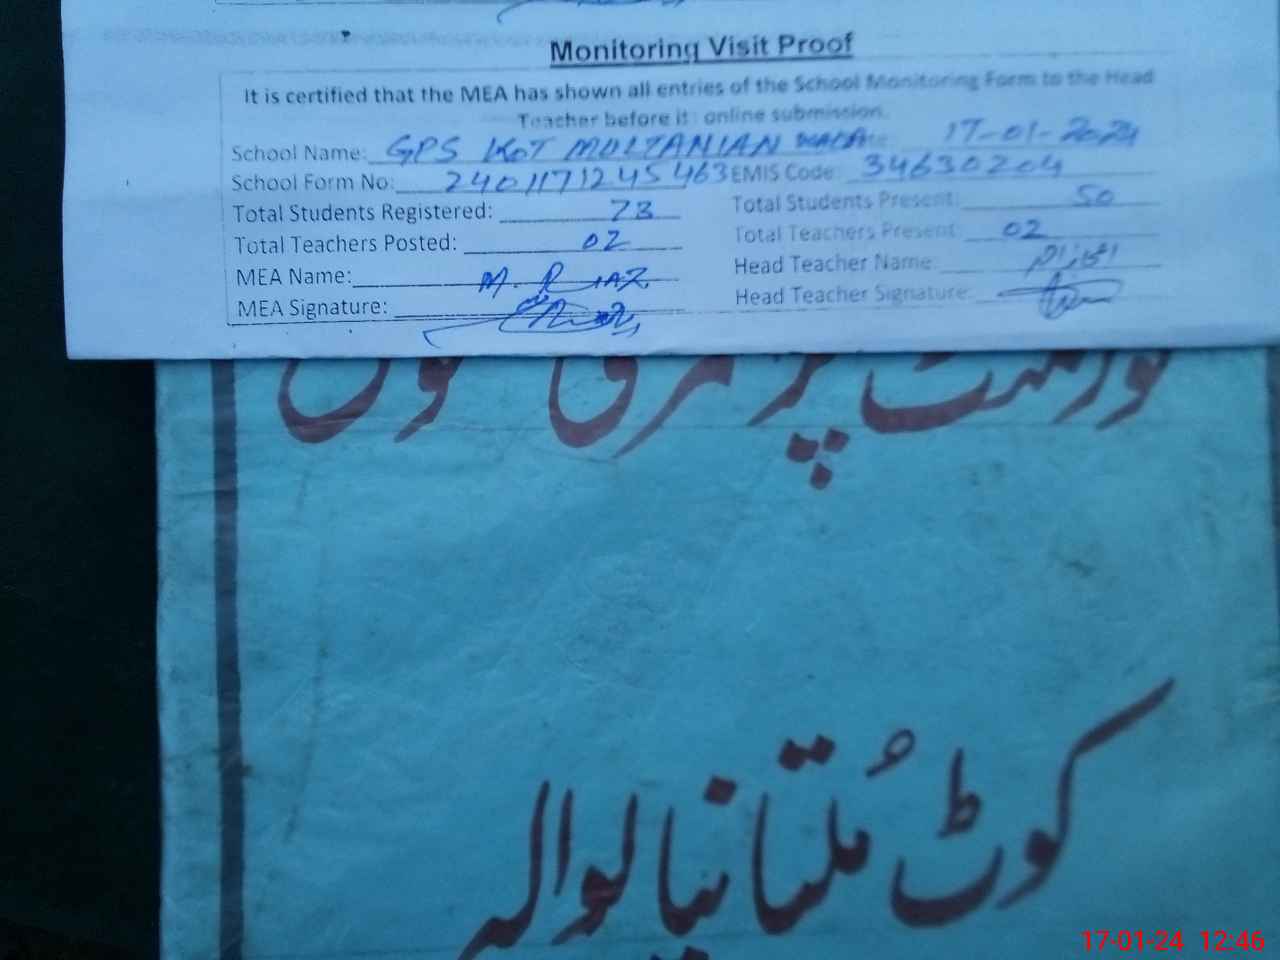 Monitoring Visit Proof
It is certified that the MEA has shown all entries of the School Monitoring Form to the Head
Teacher before it online submission.
School Name: GPS KOT MULTANIAN WALA 17-01-2024
School Form No: 2401171245463 EMIS Code: 34630204
Total Students Registered: 73 Total Students Present: 50
Total Teachers Posted: 02 Total Teachers Present: 02
MEA Name: M. RIAZ Head Teacher Name:
MEA Signature: Head Teacher Signature:
گورنمنٹ پرائمری سکول
کوٹ مُلتانیانوالہ
17-01-24 12:46